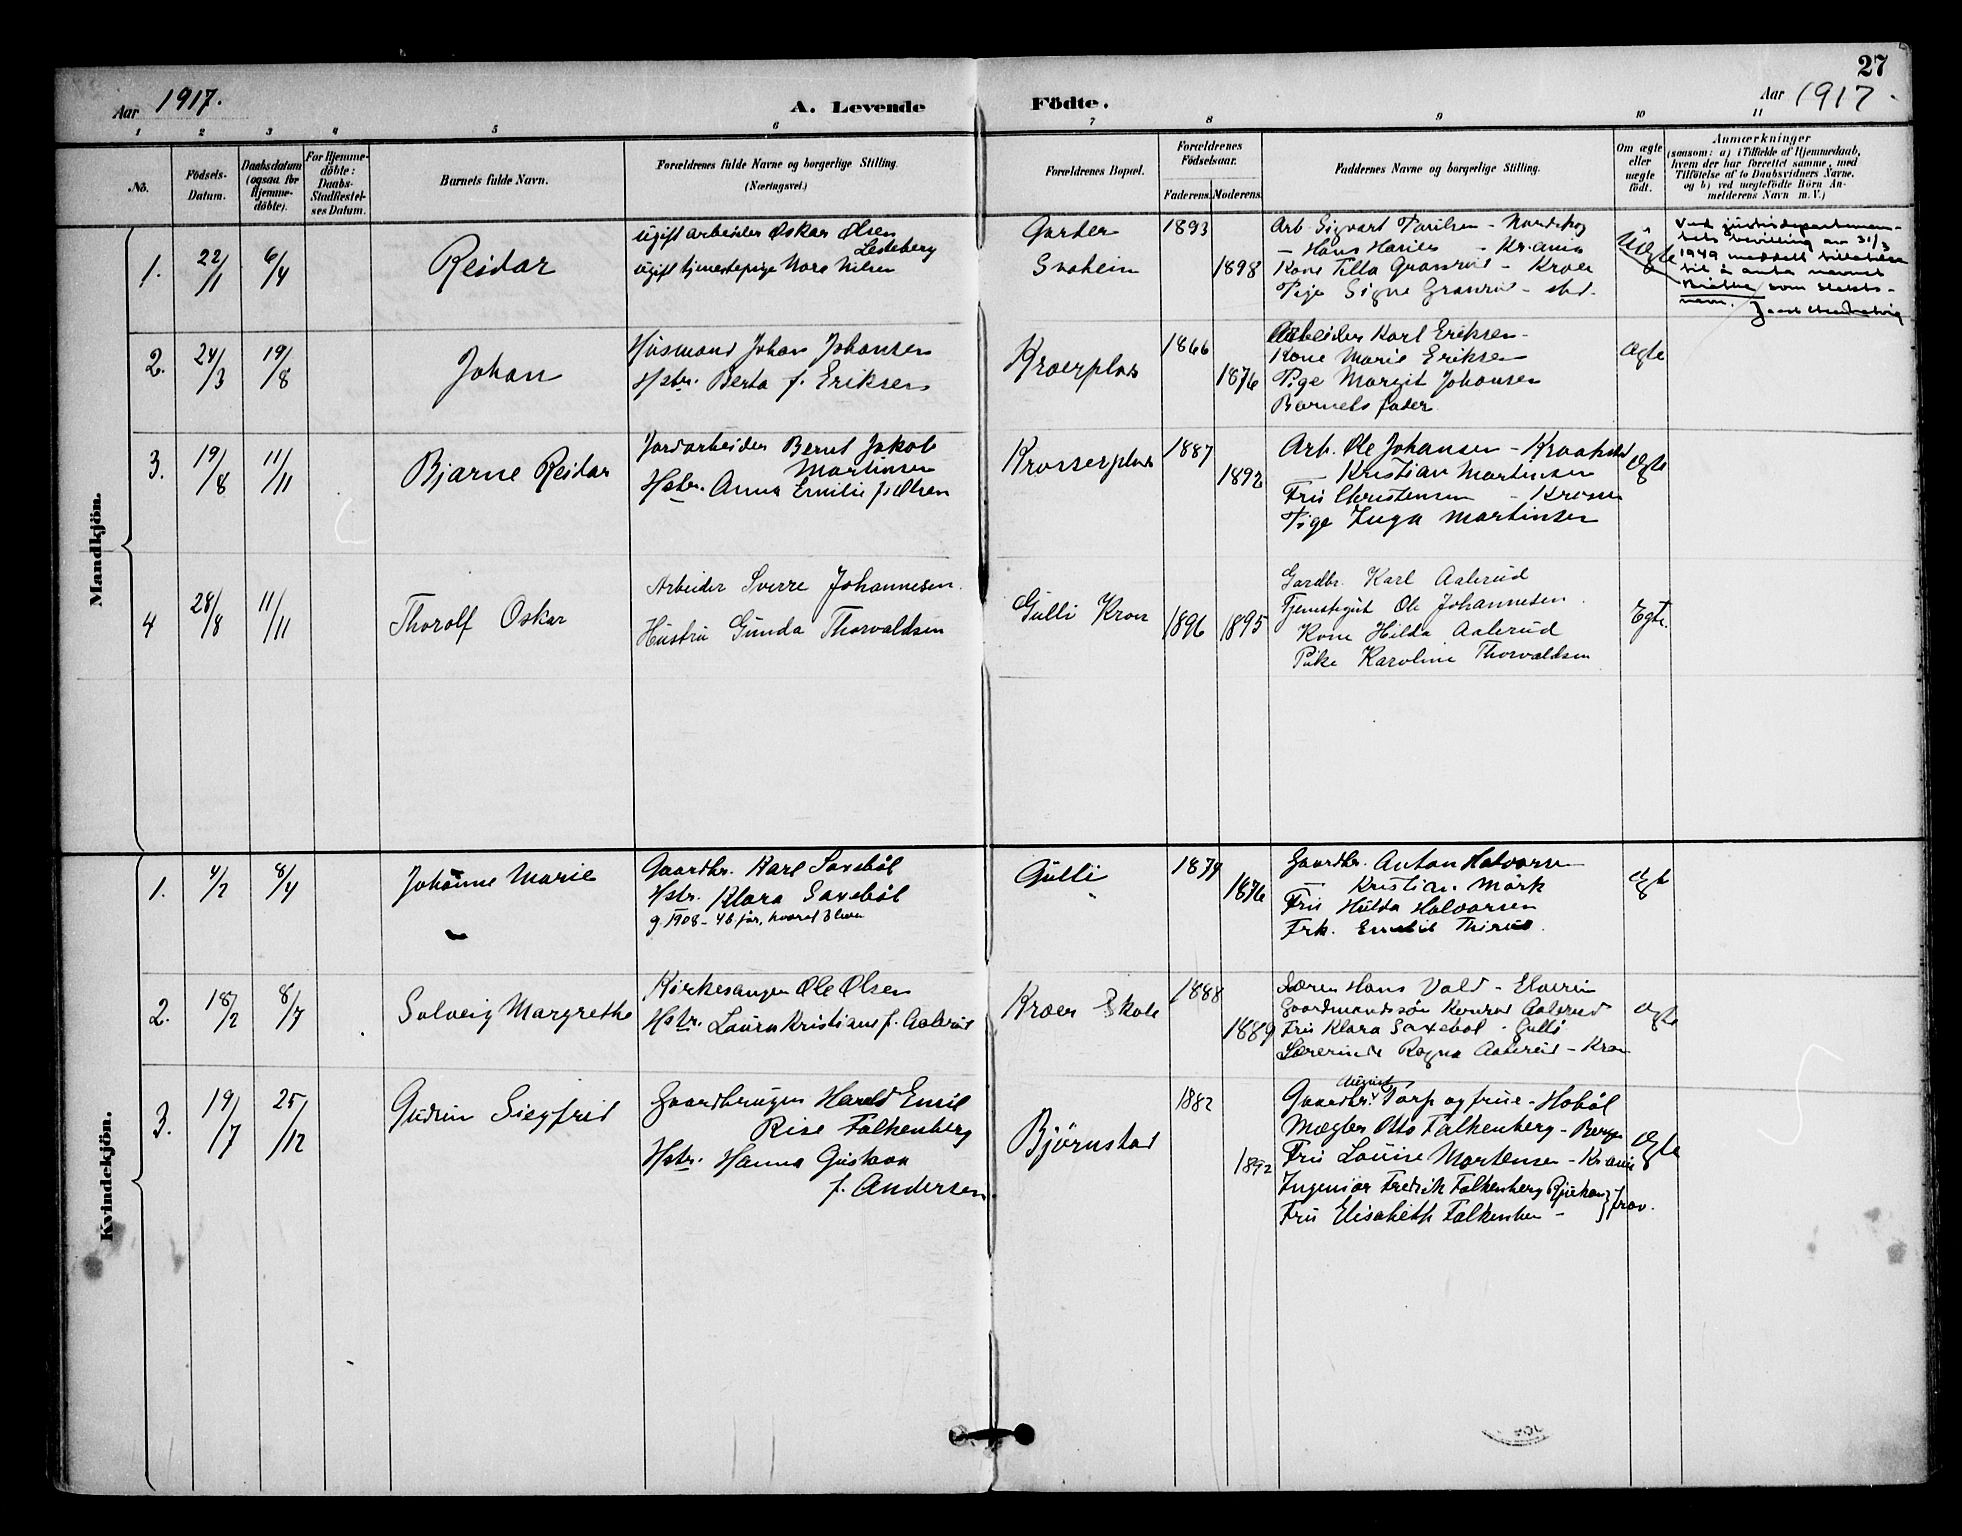 27
Aar 1917.
A. Levende Födte.
Aar 1917.
1 2 3 4 5 6 7 8 9 10 11
No.
Födsels-
Datum.
Daabsdatum
(ogsaa for
Hjemme-
döbte).
For Hjemme-
döbte:
Daabs-
Stadfæstel-
ses Datum.
Barnets fulde Navn.
Forældrenes fulde Navne og borgerlige Stilling.
(Næringsvei.)
Forældrenes Bopæl.
Forældrenes
Födselsaar.
Faderens. Moderens.
Faddernes Navne og borgerlige Stilling.
Om ægte
eller
uægte
födt.
Anmærkninger
(saasom: a) i Tilfælde af Hjemmedaab,
hvem der har forrettet samme, med
Tilföielse af to Daabsvidners Navne,
og b) ved uægtefödte Börn An-
melderens Navn m. V.)
Mandkjön.
1. 22/1 6/4 Reidar
Ugift arbeider Oskar Olsen
Lesteberg
Ugift tjenestepige Nora Nilsen
Garder
1893
1898
Arb. Sigvart Paulsen - Nordskog
— Hans Hansen - Kr.ania
Kone Tilla Granrud - Kroer
Pige Signe Granrud - sted.
Uegte
Ved justisdepartemen-
tets bevilling av 31/3
1949 meddelt tillatelse
til å anta navnet
som slekts-
navn.
2. 24/3 19/8 Johan
Husmand Johan Johansen
Hstr. Berta f. Eriksen
Kroerplads
1866
1876
Arbeider Karl Eriksen
Kone Marie Eriksen
Pige Margit Johansen
Barnets fader
Ægte
3. 19/8 11/11 Bjarne Reidar
Jordarbeider Bernt Jakob
Martinsen
Hstr. Anna Emilie f. Olsen
Krosserplads
1887
1892
Arb. Ole Johansen -
Kristian Martinsen
Fru Christensen - Kroer
Pige Inga Martinsen
Ægte
4 28/8 11/11 Thorolf Oskar
Arbeider Sverre Johannesen.
Hustru Gunda Thorvaldsen
Gulli Kroer
1896 1895
Gardbr. Karl Aalerud
Tjenestegut Ole Johannesen
Kone Hilda Aalerud
Pike Karoline Thorvaldsen
Egte.
Kvindekjön.
1. 4/2 8/4 Johanne Marie
Gaardbr. Karl Saxebøl
Hstr. Klara Saxebøl
g. 1908 - 4 b før, hvoraf 3 leve
Gulli
1879
1876
Gaardbr. Anton Halvorsen
— Kristian Mørk
Fru Hulda Halvorsen
Frk. Emilie Thirud.
Ægte
2. 18/2 8/7 Solveig Margrethe
Kirkesanger Ole Olsen
Hstr. Laura Kristiane f. Aalerud
Kroer Skole
1888
1889
Lærer Hans Vold -
Gaardmandssøn Konrad Aalerud
Fru Klara Saxebøl - Gulli
Lærerinde Ragna Aalerud - Kroer
Ægte
3. 19/7 25/12 Gudrun Siegfrid
Gaardbruger Harald Emil
Rise Falkenberg
Hstr. Hanna Gustava
f. Andersen.
Bjørnstad
1882
1892
Gaardbr. August Torp og frue - Hobøl
Mægler Otto Falkenberg - Bergen
Fru Louise Mortensen - Kr.ania
Ingeniør Fredrik Falkenberg Rjukan
Fru Elisabeth Falkenber - } frav.
Ægte